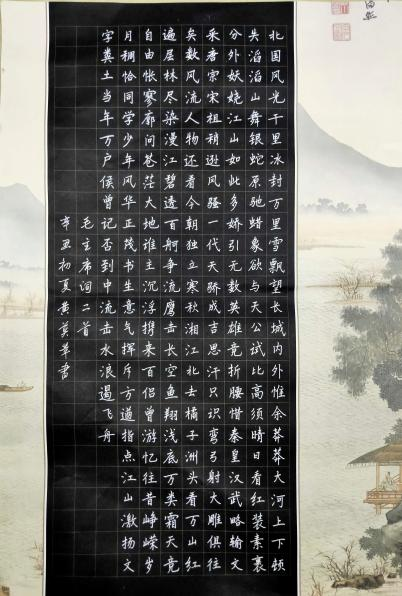 北国风光千里冰封万里雪飘望长城内外惟余莽莽大河上下顿
失滔滔山舞银蛇原驰蜡象欲与天公试比高须晴日看红装素裹
分外妖娆江山如此多娇引无数英雄竞折腰惜秦皇汉武略输文
采唐宗宋祖稍逊风骚一代天骄成吉思汗只识弯弓射大雕俱往
矣数风流人物还看今朝独立寒秋湘江北去橘子洲头看万山红
遍层林尽染漫江碧透百舸争流鹰击长空鱼翔浅底万类霜天竞
自由怅寥廓问苍茫大地谁主沉浮携来百侣曾游忆往昔峥嵘岁
月稠恰同学少年风华正茂书生意气挥斥方遒指点江山激扬文
字粪土当年万户侯曾记否到中流击水浪遏飞舟
毛主席词二首
辛丑初夏黄英华書